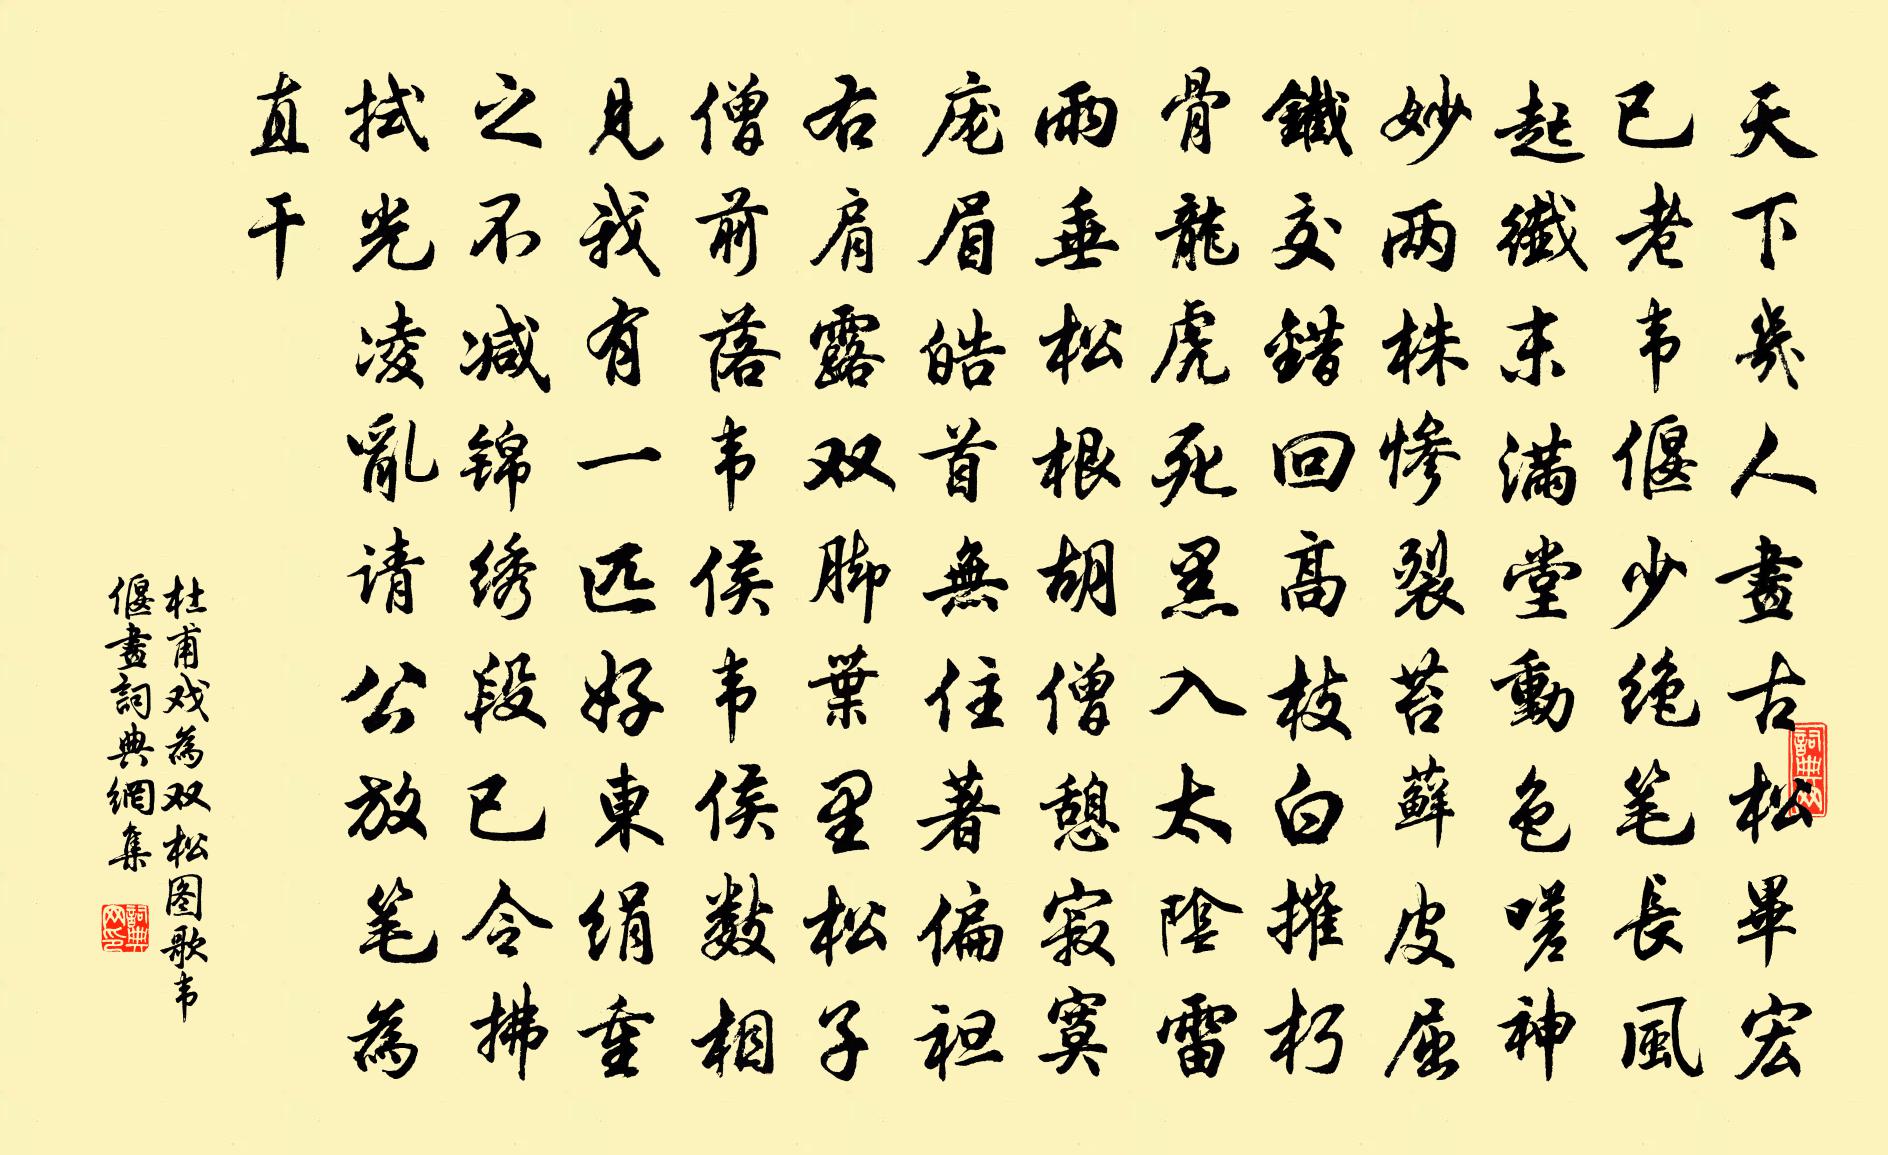 天下幾人畫古松畢宏
已老韦偃少绝笔長風
起纖末滿堂動色嗟神
妙两株惨裂苔藓皮屈
鐵交錯回高枝白摧朽
骨龍虎死黑入太陰雷
雨垂松根胡僧憩寂寞
庞眉皓首無住著偏袒
右肩露双脚葉里松子
僧前落韦侯韦侯数相
見我有一匹好東绢重
之不减锦绣段已令拂
拭光凌亂请公放笔為
直干
杜甫戏為双松图歌韦
偃畫詞典網集
詞典网
詞典网印